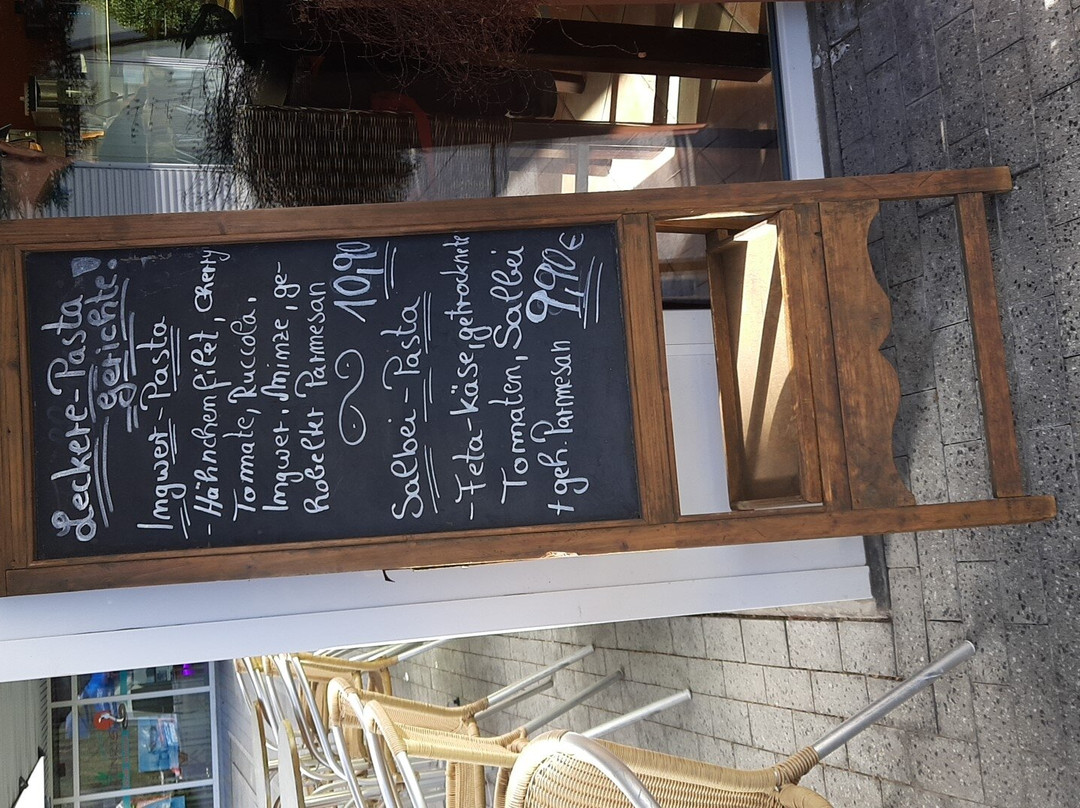 Leckere-Pasta
gerichte:
Ingwer-Pasta
-Hähnchenfilet, Cherry
Tomate, Ruccola,
Ingwer, Minze, ge-
hobelter Parmesan
10,90
Salbei-Pasta
-Feta-Käse, getrocknete
Tomaten, Salbei
+ geh. Parmesan 9,90€